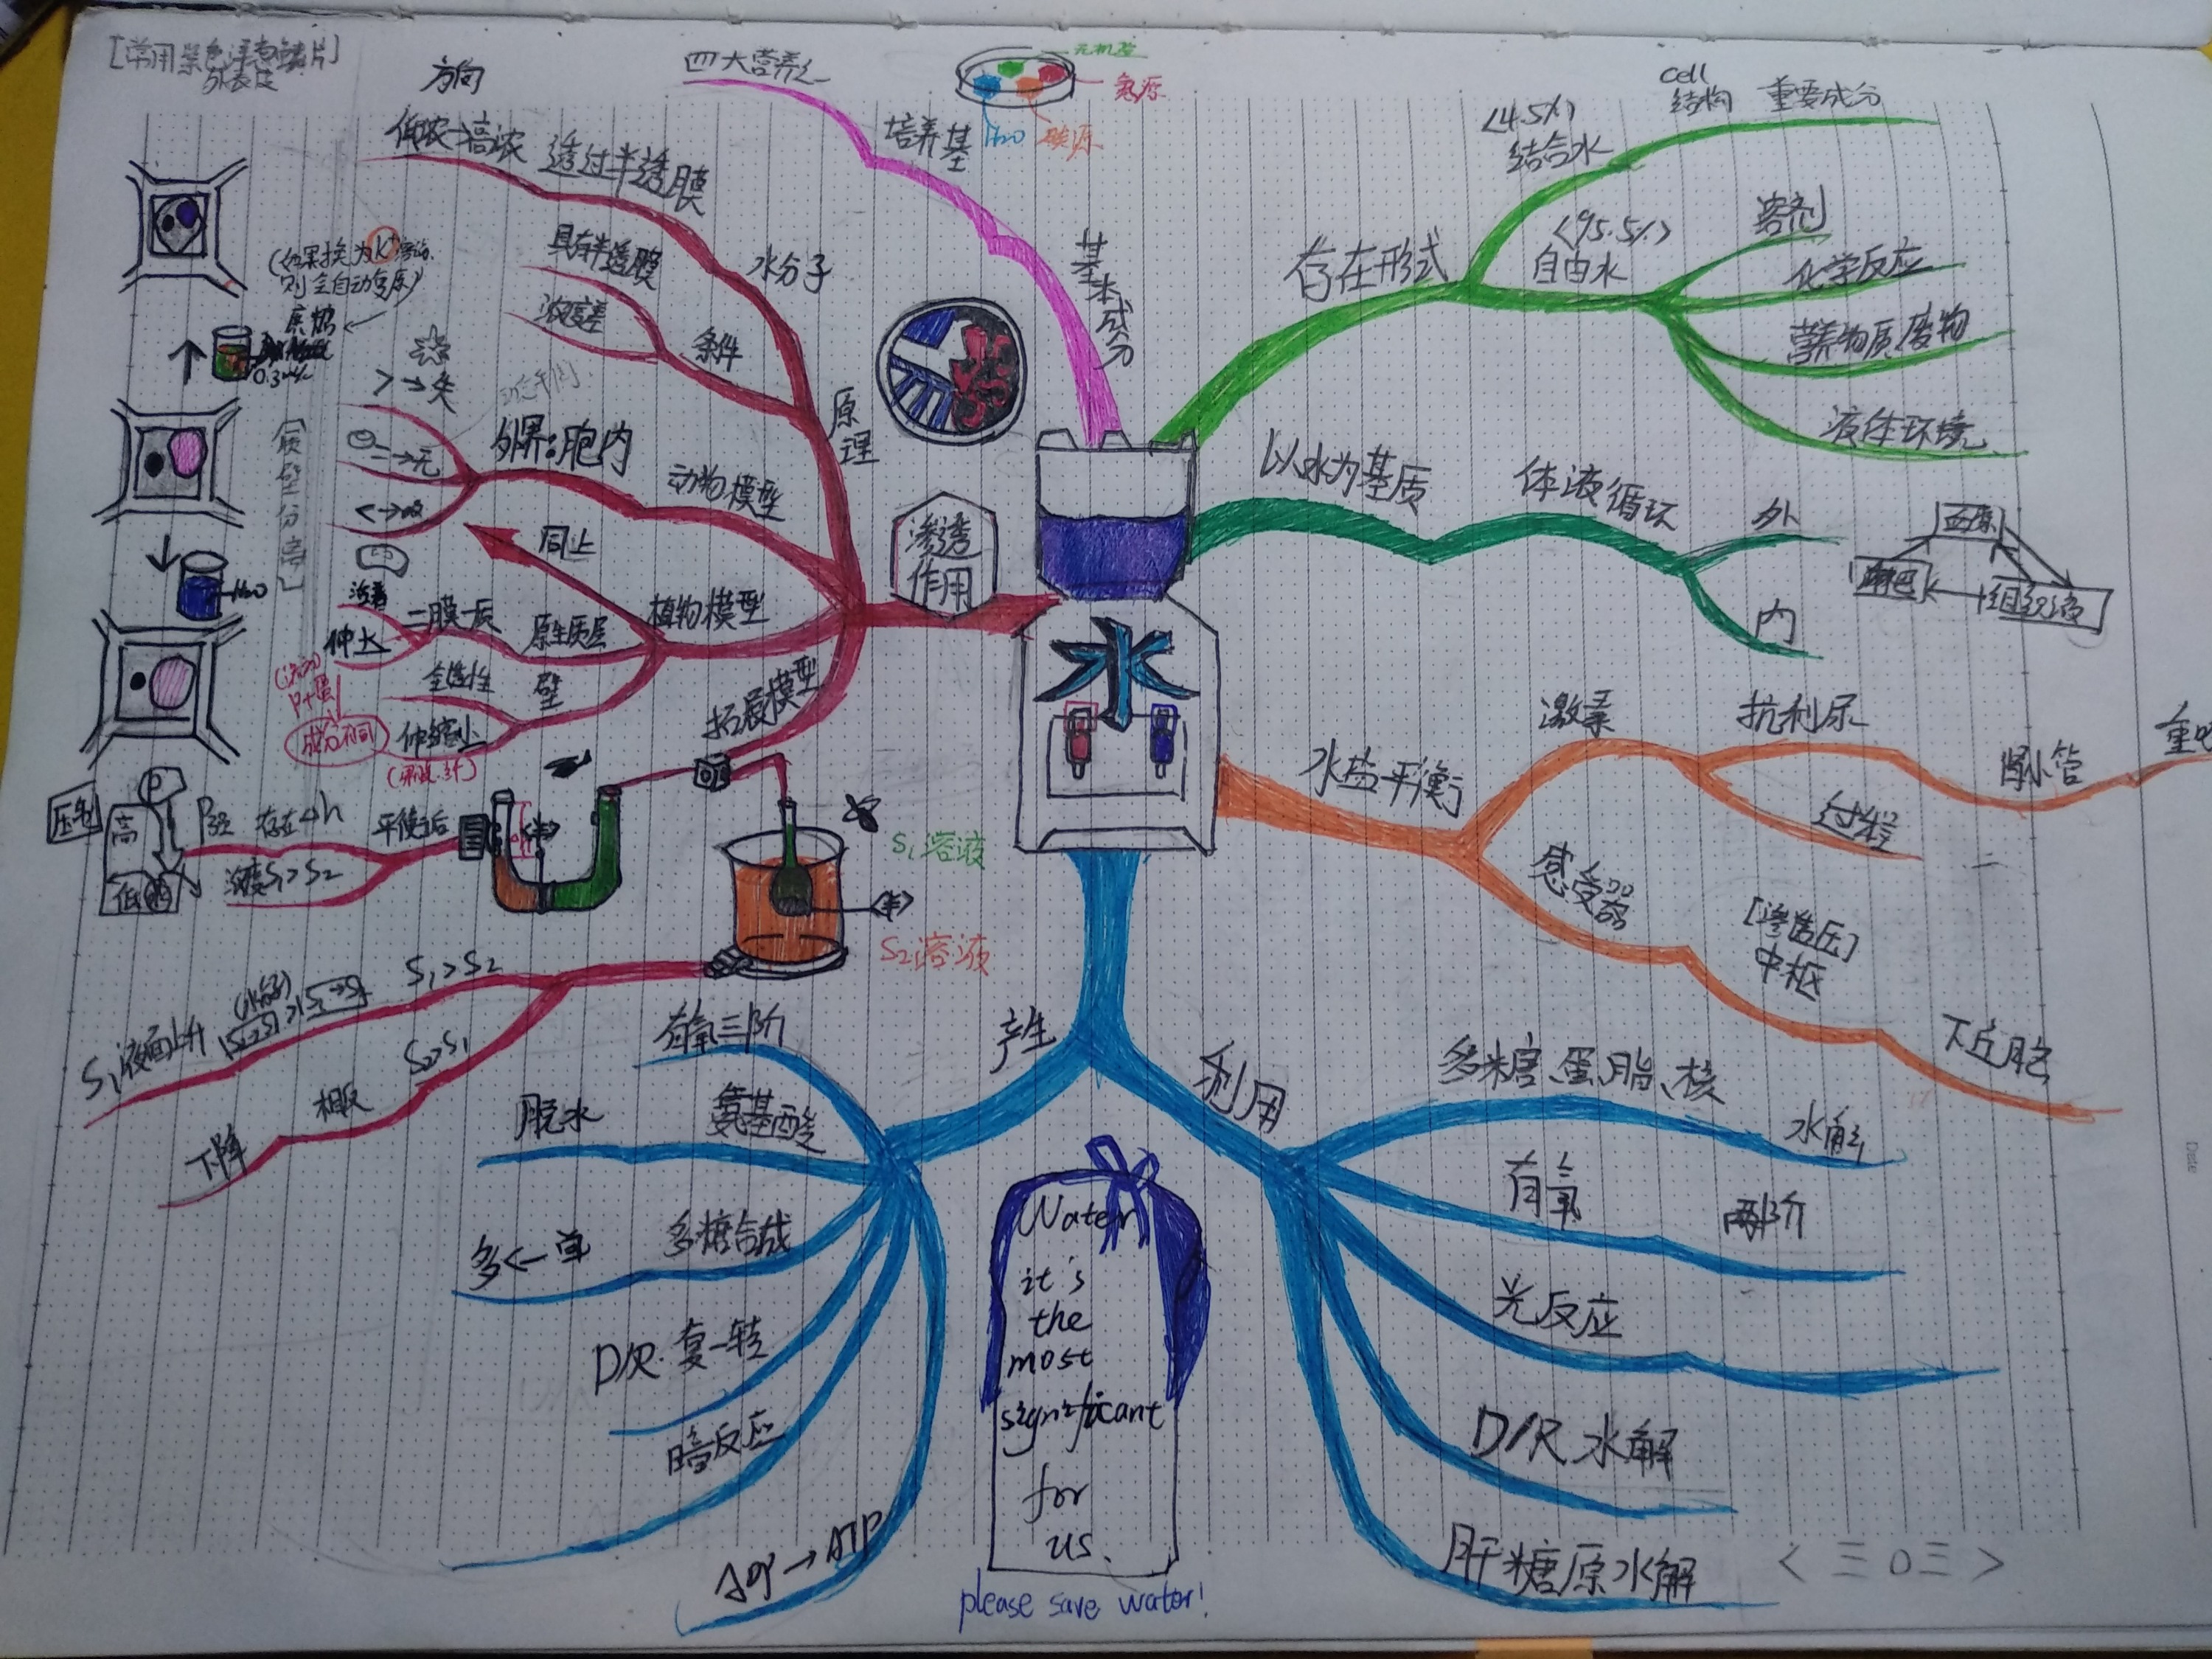 [常用紫色洋葱鳞片]
外表皮
方向
低浓→高浓
透过半透膜
水分子
具有半透膜
浓度差
条件
原理
(如果换为K⁺溶液
则会自动复原)
蔗糖
0.3
[质壁分离]
H₂O
>→失
=→无
<→吸
动态平衡
外界:胞内
动物模型
同上
渗透
作用
活着
伸大
二膜一质
原生质层
植物模型
全透性
壁
伸缩小
成分不同
拓展模型
压强
高
低
P
存在△h
平衡后
浓度S₁>S₂
S₁溶液
S₂溶液
S₁>S₂
S₁液面上升
S₂>S₁
相反
下降
四大营养
培养基
基本成分
无机盐
氮源
H₂O
碳源
水
存在形式
<4.5%>
结合水
cell
结构
重要成分
<95.5%>
自由水
溶剂
化学反应
营养物质废物
液体环境
以水为基质
体液循环
外
内
血浆
淋巴
组织液
水盐平衡
激素
抗利尿
肾小管
感受器
[渗透压]
中枢
下丘脑
产生
有氧三阶
氨基酸
脱水
多糖合成
多←单
D/R.复一转
暗反应
ADP→ATP
利用
多糖、蛋、脂、核
水解
有氧
两阶
光反应
D/R 水解
肝糖原水解
Water
it's
the
most
significant
for
us.
please save water!
<三0三>
Date